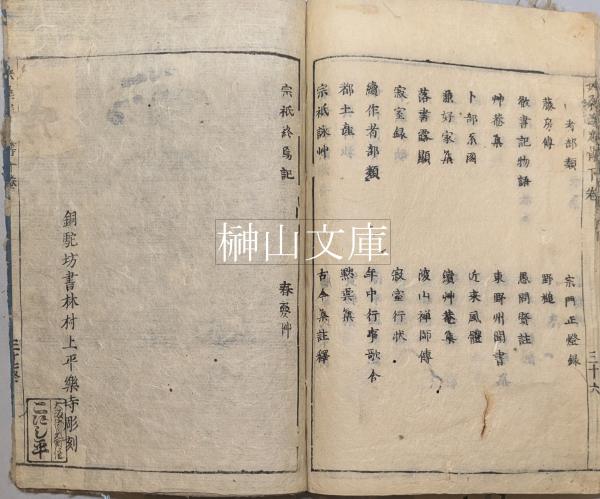 考部類
宗門正燈録
藤房傳
野槌
徹書記物語
愚問賢註
艸菴集
東野州聞書
卜部系圖
近来風體
兼好家集
續艸菴集
落書露顯
夜山禅師傳
寂室録
寂室行状
續作者部類
年中行事歌合
都土産
愁呉集
宗祇詠艸
古今集註釋
宗祇終焉記
春夢艸
銅駝坊書林村上平樂寺彫刻
下卷
三十六
榊山文庫